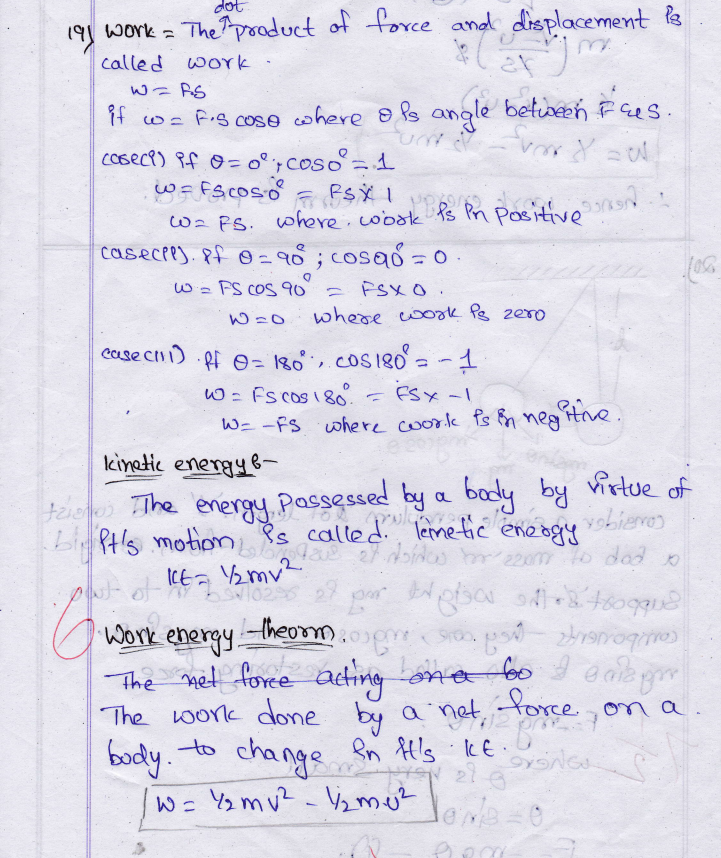 dot
19) Work = The ↑ product of force and displacement is
called work.
W = F.S
if W = F.S cosθ where θ is angle between F & S.
case(i) if θ = 0° ; cos0° = 1
W = FS cos0° = FS x 1
W = FS. where work is in Positive
case(ii). if θ = 90° ; cos90° = 0.
W = FS cos 90° = FS x 0.
W = 0 where work is zero
case(iii) .if θ = 180° ., cos180° = -1
W = FS cos180° = FS x -1
W = -FS where work is in negitive.
kinetic energy :-
The energy possessed by a body by virtue of
it's motion is called. kinetic energy
KE = 1/2 mv²
6
Work energy theorm.
The net force acting on a bo
The work done by a net force on a
body. to change in it's KE.
W = 1/2 mv² - 1/2 mu²